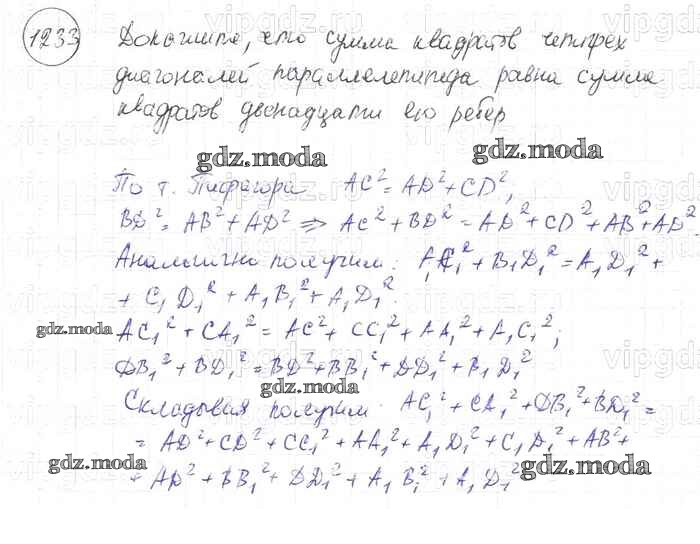 1233 Докажите, что сумма квадратов четырех
диагоналей параллелепипеда равна сумме
квадратов двенадцати его ребер
gdz.moda gdz.moda
По т. Пифагора AC² = AD² + CD²,
BD² = AB² + AD² ⇒ AC² + BD² = AD² + CD² + AB² + AD².
Аналогично получим: A₁C₁² + B₁D₁² = A₁D₁² +
+ C₁D₁² + A₁B₁² + A₁D₁².
gdz.moda AC₁² + CA₁² = AC² + CC₁² + AA₁² + A₁C₁²;
DB₁² + BD₁² = BD² + BB₁² + DD₁² + B₁D₁²
gdz.moda
Складывая получим: AC₁² + CA₁² + DB₁² + BD₁² =
= AD² + CD² + CC₁² + AA₁² + A₁D₁² + C₁D₁² + AB² +
gdz.moda gdz.moda
+ AD² + BB₁² + DD₁² + A₁B₁² + A₁D₁²